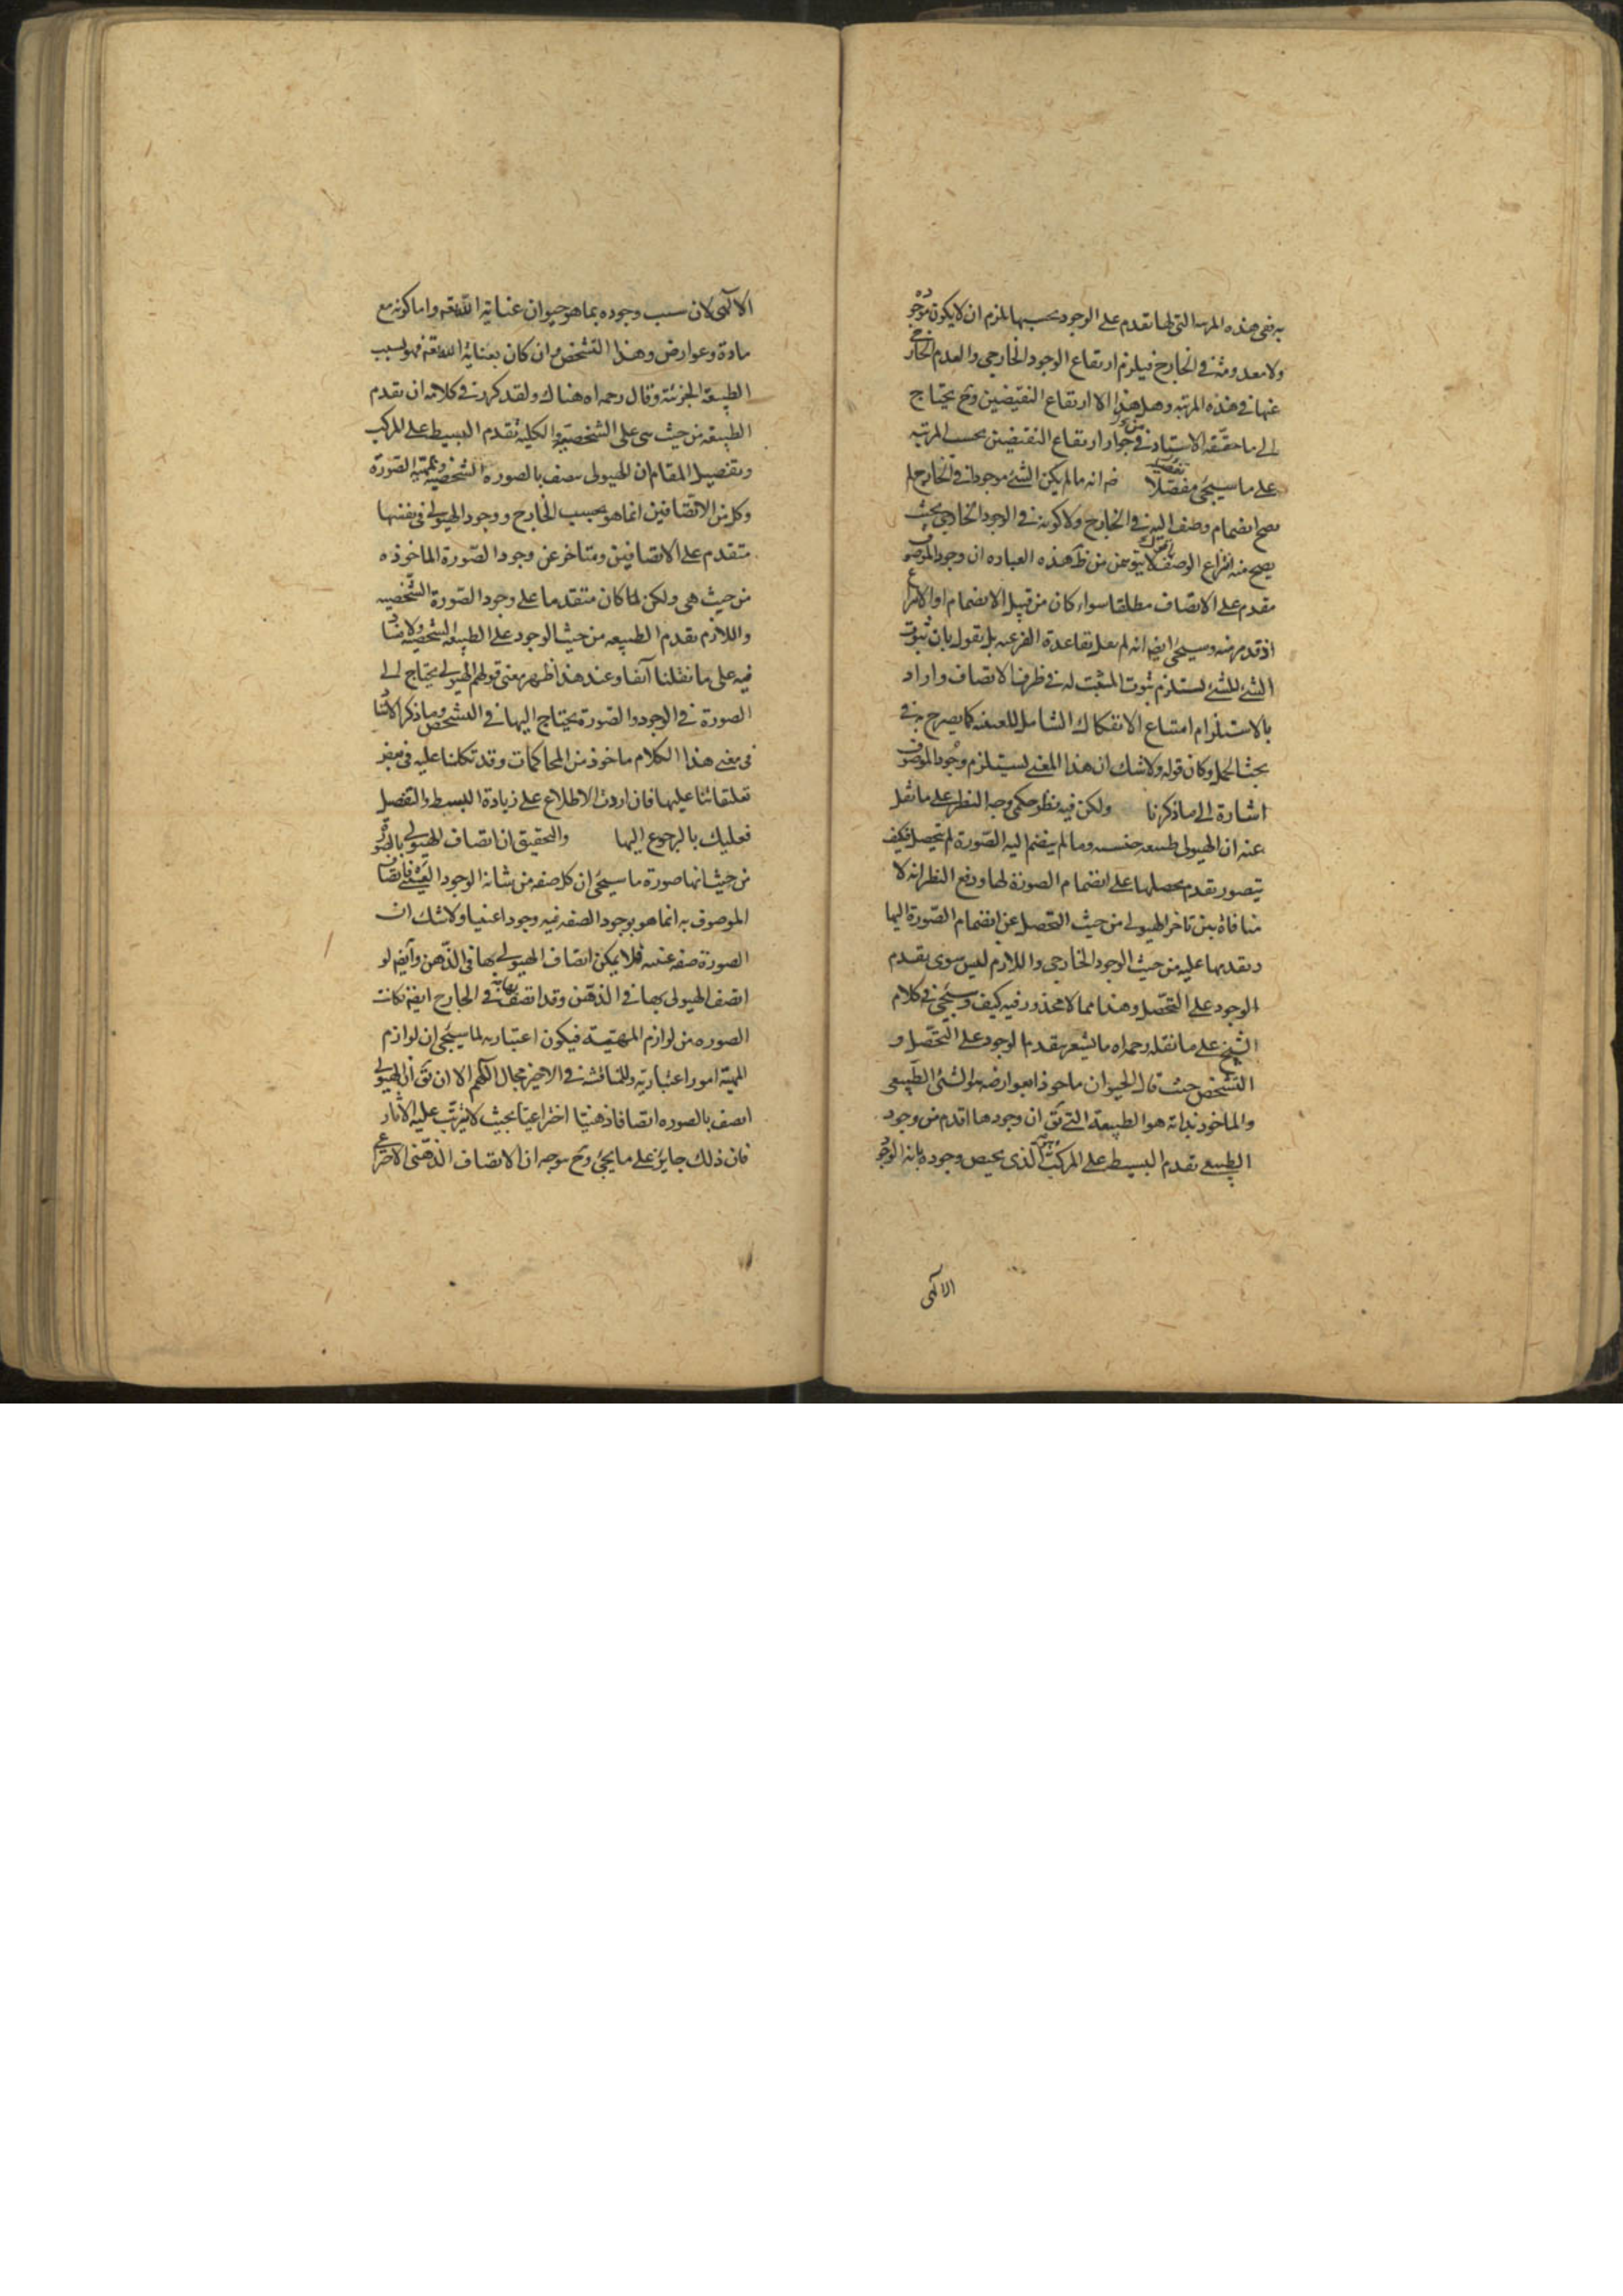 به ففى هذه المرتبه التى لها تقدم على الوجود بحسبها يلزم ان لا يكون موجود
ولا معدومة فى الخارج فيلزم ارتفاع الوجود الخارجى والعدم الخارجى
عنها فى هذه المرتبه وهل هذا الا ارتفاع النقيضين وح يحتاج
الى ما حققه الاستاد فى جواز ارتفاع النقيضين بحسب المرتبه
على ما سيجئ مفصلا انه ما لم يكن الشئ موجودا فى الخارج لم
يصح انضمام وصف اليه فى الخارج ولا كونه فى الوجود الخارجى بحيث
يصح منه انتزاع الوصف لا يتوهمن من ظ هذه العباره ان وجود الموصوف
مقدم على الاتصاف مطلقا سواء كان من قبيل الانضمام او الانتزاع
اذ قد مر منه وسيجئ ايضا انه لم يقل بقاعدة الفرعيه بل يقول بان ثبوت
الشئ للشئ يستلزم ثبوت المثبت له فى ظرف الاتصاف واراد
بالاستلزام امتناع الانفكاك الشامل للعينيه كما يصرح به فى
بحث الحمل وكان قوله ولا شك ان هذا المعنى يستلزم وجود الموصوف
اشارة الى ما ذكرنا ولكن فيه نظر حكمى وجه النظر على ما نقل
عنه ان الهيولى طبيعه جنسيه وما لم ينضم اليه الصورة لم يتحصل فكيف
يتصور تقدم تحصلها على انضمام الصورة لها ودفع النظر انه لا
منافاة بين تاخر الهيولى من حيث التحصل عن انضمام الصورة اليها
وتقدمها عليه من حيث الوجود الخارجى واللازم ليس سوى تقدم
الوجود على التحصل وهذا مما لا محذور فيه كيف وسيجئ فى كلام
الشيخ على ما نقله رحمه اه ما يشعر بتقدم الوجود على التحصل و
التشخص حيث قال الحيوان ماخوذا بعوارضه هو الشئ الطبيعى
والماخوذ بذاته هو الطبيعة التى يق ان وجودها اقدم من وجود
الطبيعى تقدم البسيط على المركب وهو الذى يخص وجوده بانه الوجود
الالهى
الالهى لان سبب وجوده بما هو حيوان عناية الله تعه واما كونه مع
مادة وعوارض وهذا التشخص وان كان بعناية الله تعه فهو بسبب
الطبيعة الجزئية وقال رحمه اه هناك ولقد كرر فى كلامه ان تقدم
الطبيعه من حيث هى على الشخصية والكلية تقدم البسيط على المركب
وتفصيل المقام ان الهيولى يتصف بالصورة الشخصية وبمهية الصورة
وكل من الاتصافين انما هو بحسب الخارج ووجود الهيولى فى نفسها
متقدم على الاتصافين ومتاخر عن وجود الصورة الماخوذه
من حيث هى ولكن لما كان متقدما على وجود الصورة الشخصيه
واللازم تقدم الطبيعه من حيث الوجود على الطبيعه الشخصيه ولا فساد
فيه على ما نقلنا آنفا وعند هذا ظهر معنى قولهم الهيولى يحتاج الى
الصورة فى الوجود والصورة يحتاج اليها فى التشخص وما ذكر الاستاد
فى معنى هذا الكلام ماخوذ من المحاكمات وقد تكلمنا عليه فى بعض
تعليقاتنا عليها فان اردت الاطلاع على زيادة البسط والتفصيل
فعليك بالرجوع اليها والتحقيق ان اتصاف الهيولى بالصورة
من حيث انها صورة ما سيجئ ان كل صفه من شانه الوجود العينى فاتصاف
الموصوف به انما هو بوجود الصفه فيه وجودا عينيا ولا شك ان
الصورة صفه عينيه فلا يمكن اتصاف الهيولى بها فى الذهن وايضا لو
اتصف الهيولى بها فى الذهن وقد اتصف بها فى الخارج ايضا فكانت
الصوره من لوازم المهية فيكون اعتباريه لما سيجئ ان لوازم
المهية امور اعتبارية وللمناقشه فى الاخير مجال اللهم الا ان يق ان الهيولى
اتصف بالصوره اتصافا ذهنيا اختراعيا بحيث لا يترتب عليه الاثار
فان ذلك جايز على ما يجئ وح يوجه ان الاتصاف الذهنى الاختراعى